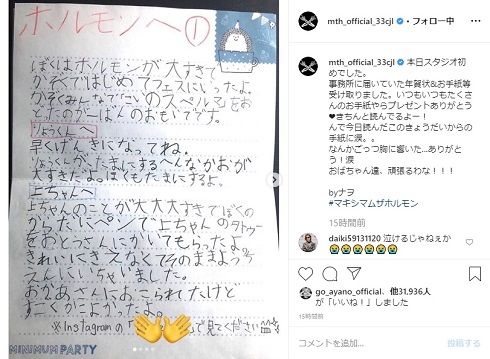 ホルモンへ①
ぼくはホルモンが大すきで
かぞくではじめてフェスにいったよ。
かぞくみんなでにいのスペル子を
おどったのがいちばんのおもいでです。
りょうくんへ
早くげんきになってね。
りょうくんが、たまにするへんなかおが
大すきだよ。ぼくもたまにするよ。
上ちゃんへ
上ちゃんのことが大大大すきでぼくの
からだにペンで上ちゃんのタトゥー
をおとうさんにかいてもらったよ。
きれいにきえなくてそのままようち
えんにいっちゃいました。
おかあさんにおこられたけど
すごくかっこよかったよ。
※Instagramの
で見てください
MINIMUM PARTY
mth_official_33cjl • フォロー中
mth_official_33cjl 本日スタジオ初
めでした。
事務所に届いていた年賀状&お手紙等
受け取りました。いつもいつもたくさ
んのお手紙やらプレゼントありがとう
❤きちんと読んでるよー!
んで今日読んだこのきょうだいからの
手紙に涙。。
なんかごっつ胸に響いた…ありがと
う!涙
おばちゃん達、頑張るわな!!!
byナヲ
#マキシマムザホルモン
15時間前
daiki59131120 泣けるじゃねぇか
😭😭😭😭😭😭
go_ayano_official、他31,936人
が「いいね!」しました
15時間前
コメントを追加...
投稿する